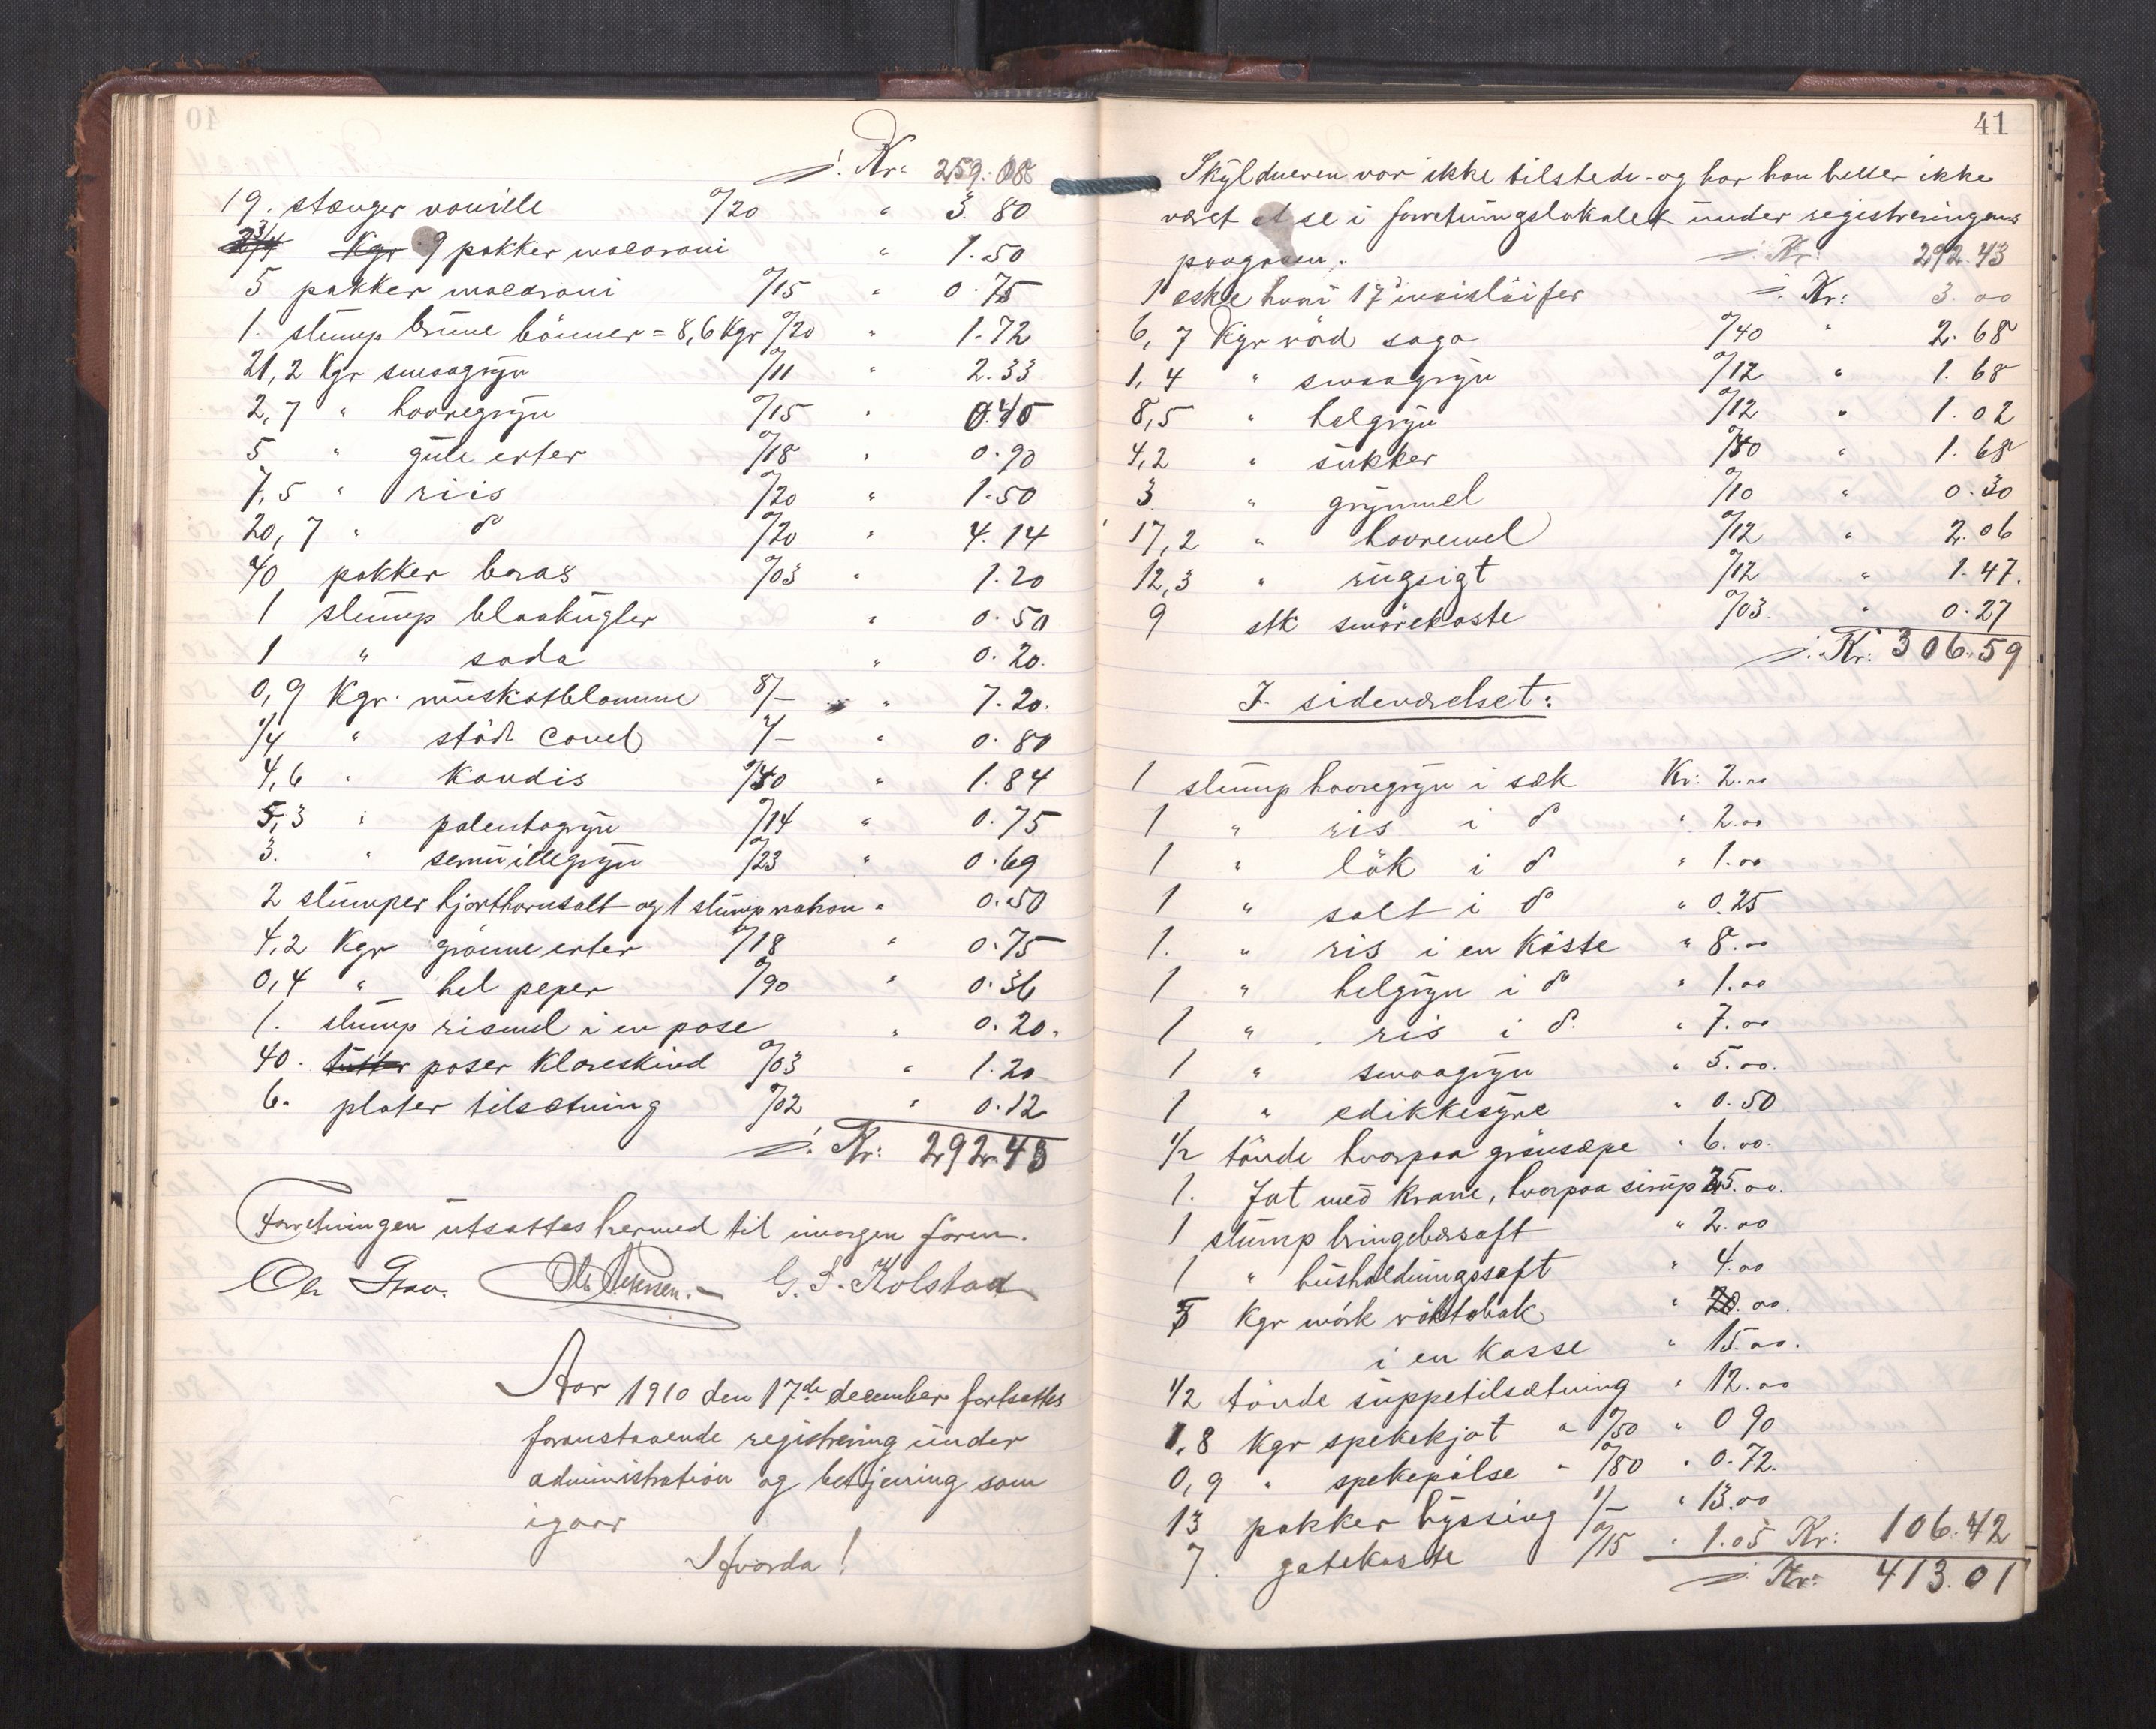 ÷ Kr: 259.08
19. stænger vanille 0/20 " 3.80
9 pakker macaroni " 1.50
5 pakker macaroni 0/15 " 0.75
1. slump brune bönner = 8,6 Kgr 0/20 " 1.72
21,2 Kgr smaagryn 0/11 " 2.33
2,7 " havregryn 0/15 " 0.40
5 " gule erter 0/18 " 0.90
7,5 " riis 0/20 " 1.50
20,7 " do 0/20 " 4.14
40 pakker borax 0/03 " 1.20
1 slump blaakugler " 0.50
1 " soda " 0.20.
0,9 Kgr. muskatblomme 8/- " 7.20.
1/4 " stödt canel " 0.80
4,6 " Kandis 0/40 " 1.84
5,3 " palentagryn 0/14 " 0.75
3. " semuillegryn 0/23 " 0.69
2 slumper hjorthornsalt og 1 slump natron " 0.50
4,2 Kgr grönne erter 0/18 " 0.75
0,4 " hel peper 0/90 " 0.36
1. slump rismel i en pose " 0.20.
40. poser Klareskind 0/03 " 1.20
6. plater tilsætning 0/02 " 0.12
÷ Kr: 292.43
Forretningen utsattes hermed til imorgen form.
Ole Grav. G. S. Kolstad
Aar 1910 den 17de december fortsattes
foranstaaende registrering under
administration og betjening som
igaar
Hvorda!
41
Skyldneren var ikke tilstede - og har han heller ikke
været at se i forretningslokalet under registreringens
paagaaen.
÷ Kr: 292.43
1 eske hvori 17 maisläifer ÷ Kr: 3.00
6,7 Kgr röd sago 0/40 " 2.68
1,4 " smaagryn 0/12 " 1.68
8,5 " helgryn 0/12 " 1.02
4,2 " sukker 0/40 " 1.68
3 " grynmel 0/10 " 0.30
17,2 " havremel 0/12 " 2.06
12,3 " rugsigt 0/12 " 1.47.
9 stk smörekoste 0/03. " 0.27
÷ Kr: 306.59
I sideværelset:
1 slump havregryn i sæk Kr: 2.00
1 " ris i do " 2.00
1 " lök i do " 1.00
1 " salt i do " 0.25
1. " ris i en Kasse " 8.00
1 " helgryn i do " 1.00
1 " ris i do. " 7.00
1 " smaagryn " 5.00.
1 " edikkesyre " 0.50
1/2 tönde hvorpaa grönsæpe " 6.00.
1. Fat med Krane, hvorpaa sirup 25.00.
1 slump bringebærsaft " 2.00
1 " husholdningssaft " 4.00
5 Kgr mörk röktobak " 20.00.
i en Kasse " 15.00.
1/2 tönde suppetilsætning " 12.00
1,8 Kgr spekekjøt a 0/50 " 0 90
0,9 " spekepölse " 0/80 " 0.72.
13 pakker hyssing 1/- " 13.00
7. gatekoste 0/15 " 1.05 Kr: 106.42
÷ Kr: 413.01